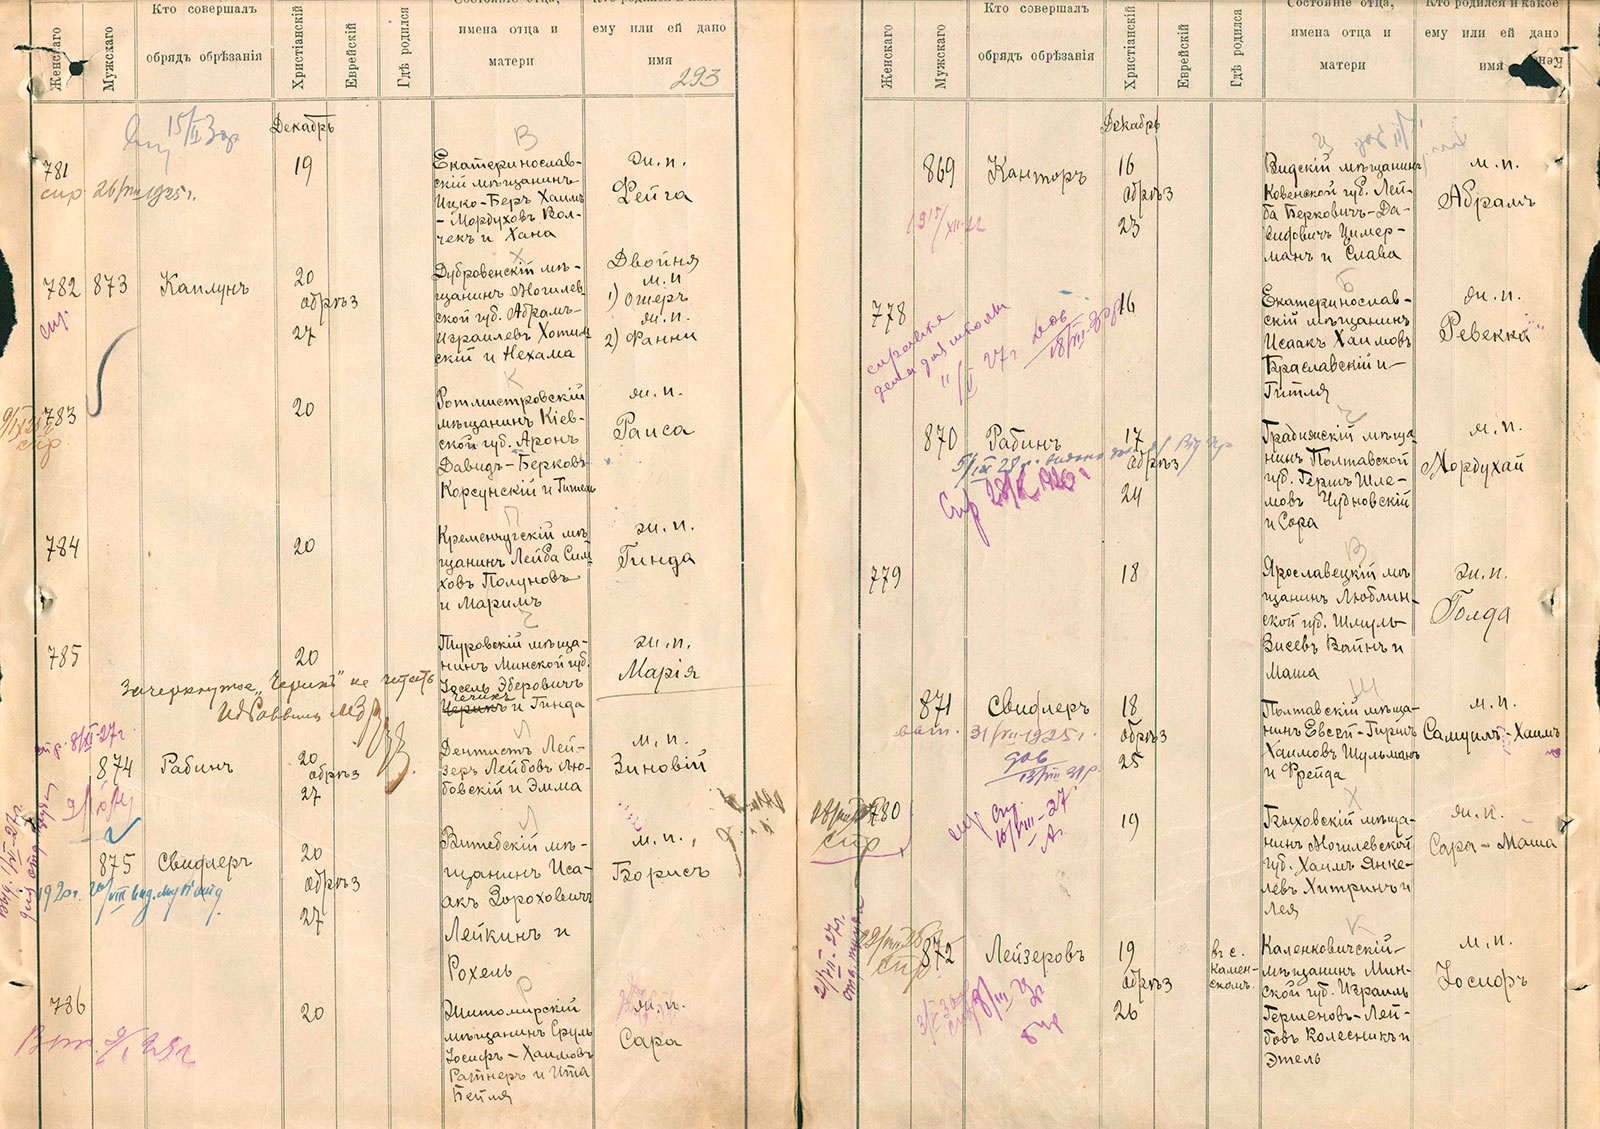 Женскаго
Мужскаго
Кто совершалъ
обрядъ обрѣзанія
Христіанскій
Еврейскій
Гдѣ родился
Состояніе отца,
имена отца и
матери
Кто родился и какое
ему или ей дано
имя
293
15/II 30г
Декабрь
781
спр 26/VIII 1925 г.
19
Екатеринослав-
скій мѣщанинъ
Ицко-Беръ Хаимъ
-Мордуховъ Вол-
чекъ и Хана
ж. п.
Фейга
782
873
Каплунъ
20
обрѣз
27
Дубровенскій мѣ-
щанинъ Могилев-
ской губ. Абрамъ-
Израилевъ Хотим-
скій и Нехама
Двойня
м. п
1) Ошеръ
ж. п.
2) Фанни
783
20
Ротмистровскій
мѣщанинъ Кіев-
ской губ. Аронъ
Давидъ-Берковъ
Корсунскій и Титель
ж. п.
Раиса
784
20
Кременчугскій мѣ-
щанинъ Лейба Сим-
ховъ Полуновъ
и Маримъ
ж. п.
Гинда
785
20
Туровскій мѣща-
нинъ Минской губ.
Іосель Эберовичъ
Чечикъ
Черикъ и Гинда
ж. п.
Марія
Зачеркнутое „Черикъ" не читать
спр. 8/XI-27г.
874
Рабинъ
20
обрѣз
27
Дентистъ Лей-
зеръ Лейбовъ Лю-
бовскій и Эмма
м. п.
Зиновій
875
Свидлеръ
20
обрѣз
27
Витебскій мѣ-
щанинъ Иса-
акъ Зороховичъ
Лейкинъ и
Рохель
м. п.
Борисъ
786
20
Житомирскій
мѣщанинъ Сруль
Іосифъ-Хаимовъ
Ратнеръ и Ита
Бейля
ж. п.
Сара
Женскаго
Мужскаго
Кто совершалъ
обрядъ обрѣзанія
Христіанскій
Еврейскій
Гдѣ родился
Состояніе отца,
имена отца и
матери
Кто родился и какое
ему или ей дано
имя
Декабрь
869
Канторъ
16
обрѣз
23
Видскій мѣщанинъ
Ковенской губ. Лей-
ба Берковичъ-Да-
видовичъ Цимер-
манъ и Слава
м. п.
Абрамъ
778
16
справка
для школы
Екатеринослав-
скій мѣщанинъ
Исаакъ Хаимовъ
Браславскій и
Гитля
ж. п.
Ревекка
870
Рабинъ
17
обрѣз
24
Градижскій мѣща-
нинъ Полтавской
губ. Гершъ Шле-
мовъ Чудновскій
и Сора
м. п.
Мордухай
779
18
Ярославецкій мѣ
щанинъ Люблин-
ской губ. Шмуль
Зисевъ Вайнъ и
Маша
ж. п.
Голда
871
Свидлеръ
18
обрѣз
25
31/VIII-1925 г.
Полтавскій мѣща-
нинъ Евсей-Гиршъ
Хаимовъ Шульманъ
и Фрейда
м. п.
Самуилъ-Хаимъ
780
спр
19
Быховскій мѣща-
нинъ Могилевской
губ. Хаимъ Янке-
левъ Хитринъ и
Лея
ж. п.
Сара-Маша
872
Лейзеровъ
19
обрѣз
26
въ с.
Камен-
скомъ.
Каленковичскій
мѣщанинъ Мин-
ской губ. Израиль
Гершеновъ-Лей-
бовъ Колесникъ и
Этель
м. п.
Іосифъ